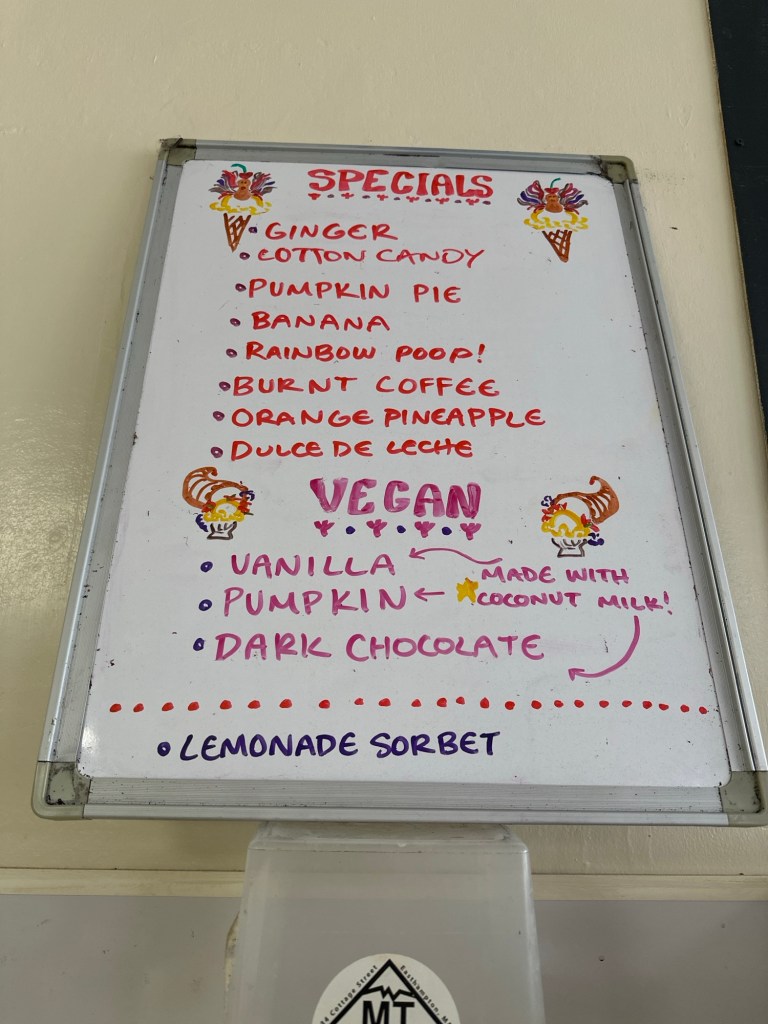 SPECIALS
GINGER
COTTON CANDY
PUMPKIN PIE
BANANA
RAINBOW POOP!
BURNT COFFEE
ORANGE PINEAPPLE
DULCE DE LECHE
VEGAN
VANILLA
MADE WITH
COCONUT MILK!
PUMPKIN
DARK CHOCOLATE
LEMONADE SORBET
Cottage Street
Easthampton,
MT